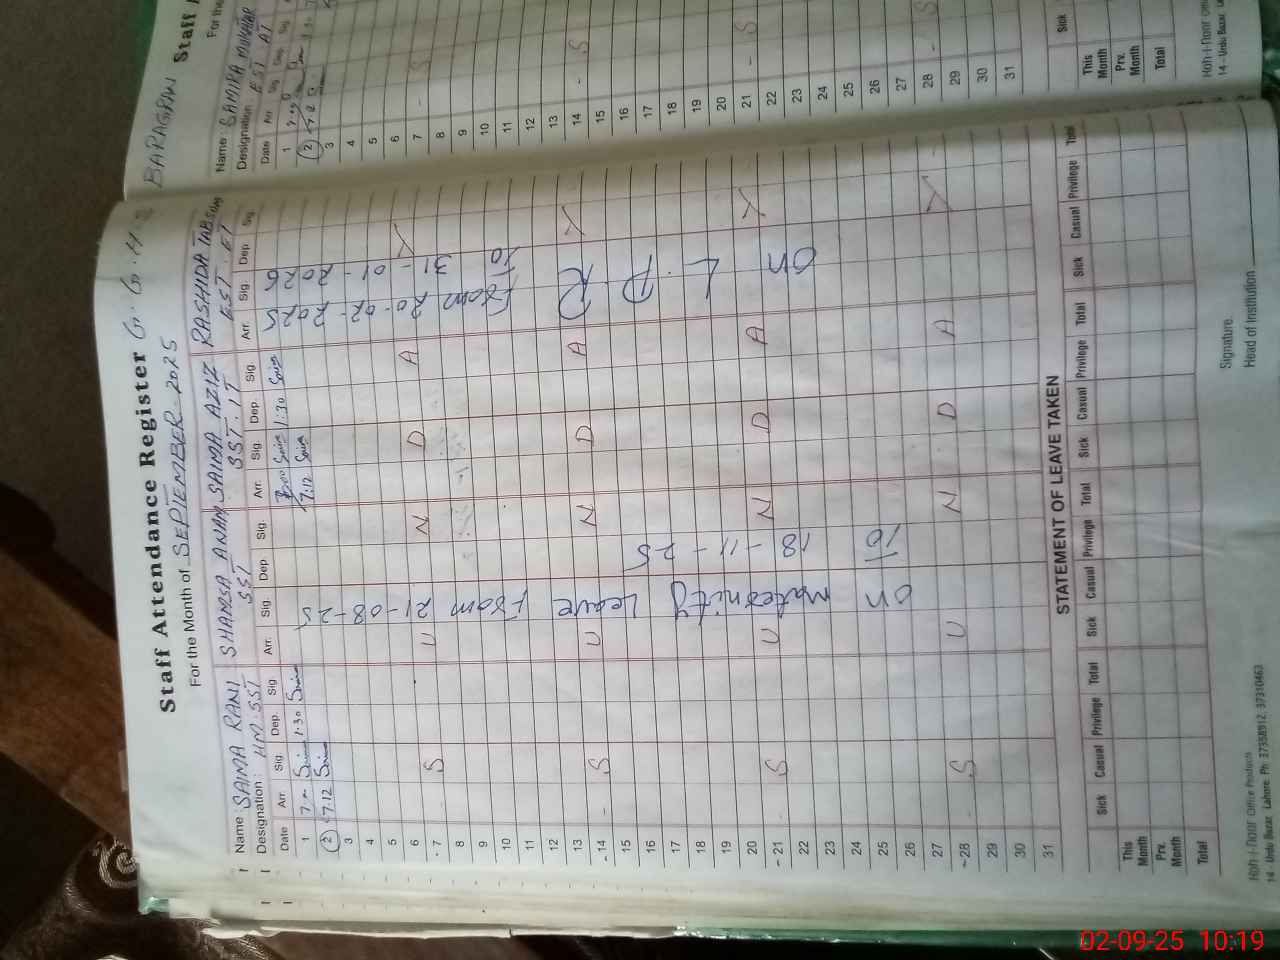 BARAGRAN
Staff
For the
Name: SAMIRA MUKHTAR
Designation EST AT
Date Arr Sig Dep Sig
Staff Attendance Register G. G. H. S
For the Month of SEPTEMBER 2025
Name: SAIMA RANI SHAMSA ANAM SAIMA AZIZ RASHIDA TABSUM
Designation: HM. SST SST SST. IT EST. ET
Date Arr Sig Dep. Sig Arr. Sig. Dep Sig. Arr. Sig Dep Sig Arr. Sig Dep Sig.
1 7 1:30 1:30
2 7:12 7:12
3
4
5
6
7 S U N D A Y
8
9
10
11
12
13
14 S U N D A Y
15
16
17
18
19
20
21 S U N D A Y
22
23
24
25
26
27
28 S U N D A Y
29
30
31
on Maternity Leave From 21-08-25
To 18-11-25
on L.P.R From 20-02-2025
To 31-01-2026
STATEMENT OF LEAVE TAKEN
Sick Casual Privilege Total Sick Casual Privilege Total Sick Casual Privilege Total Sick Casual Privilege Total
This Month
Prv. Month
Total
Signature.
Head of Institution
Koh-i-Noor Office Products
14 - Urdu Bazar, Lahore. Ph: 37358912, 37310463
1
2
3
4
5
6
7 S
8
9
10
11
12
13
14 S
15
16
17
18
19
20
21 S
22
23
24
25
26
27
28 S
29
30
31
Sick
This Month
Prv. Month
Total
Koh-i-Noor Office
14 - Urdu Bazar, La
02-09-25 10:19